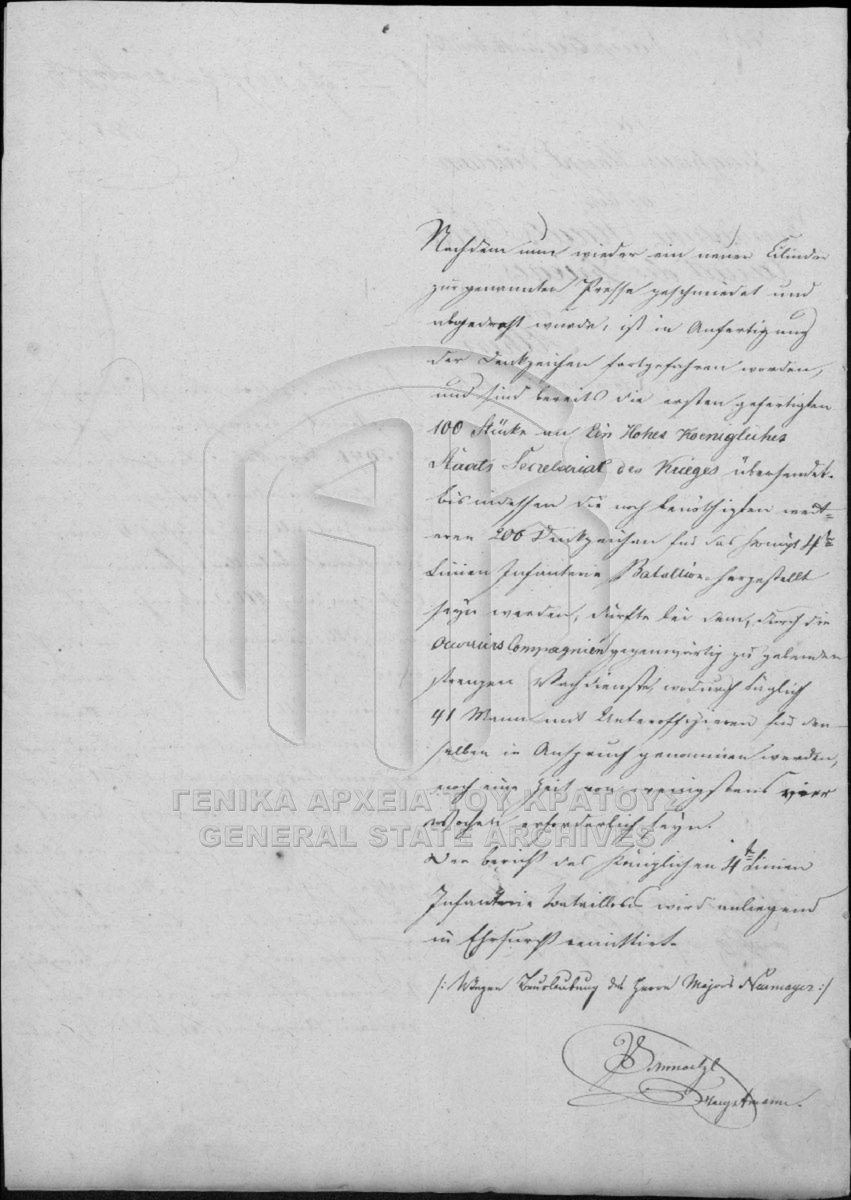 Nachdem nun wieder ein neuer Cilinder
zur genannten Presse geschmiedet und
abgedreht wurde, ist in Anfertigung
der Denkzeichen fortgefahren worden,
und sind bereits die ersten gefertigten
100 Stücke an Ein Hohes Koenigliches
Staats Secretariat des Krieges übersendet.
bis indessen die noch benöthigten weit=
eren 200 Denkzeichen für das königl 4te
Linien Infanterie Bataillon hergestellt
seyn werden, dürfte bei dem, durch die
Ouvriers Compagnien gegenwärtig zu gebenden
strengen Wachdienste, wodurch täglich
41 Mann mit Unteroffizieren für den=
selben in Anspruch genommen werden,
noch eine Zeit von wenigstens vier
Wochen erforderlich seyn.
Der bericht des königlichen 4t Linien
Infanterie Bataillons wird anliegend
in Ehrfurcht remittirt.
/: Wegen Beurlaubung des Herrn Majors Neumayer :/
Hauptmann.
ΓΕΝΙΚΑ ΑΡΧΕΙΑ ΤΟΥ ΚΡΑΤΟΥΣ
GENERAL STATE ARCHIVES